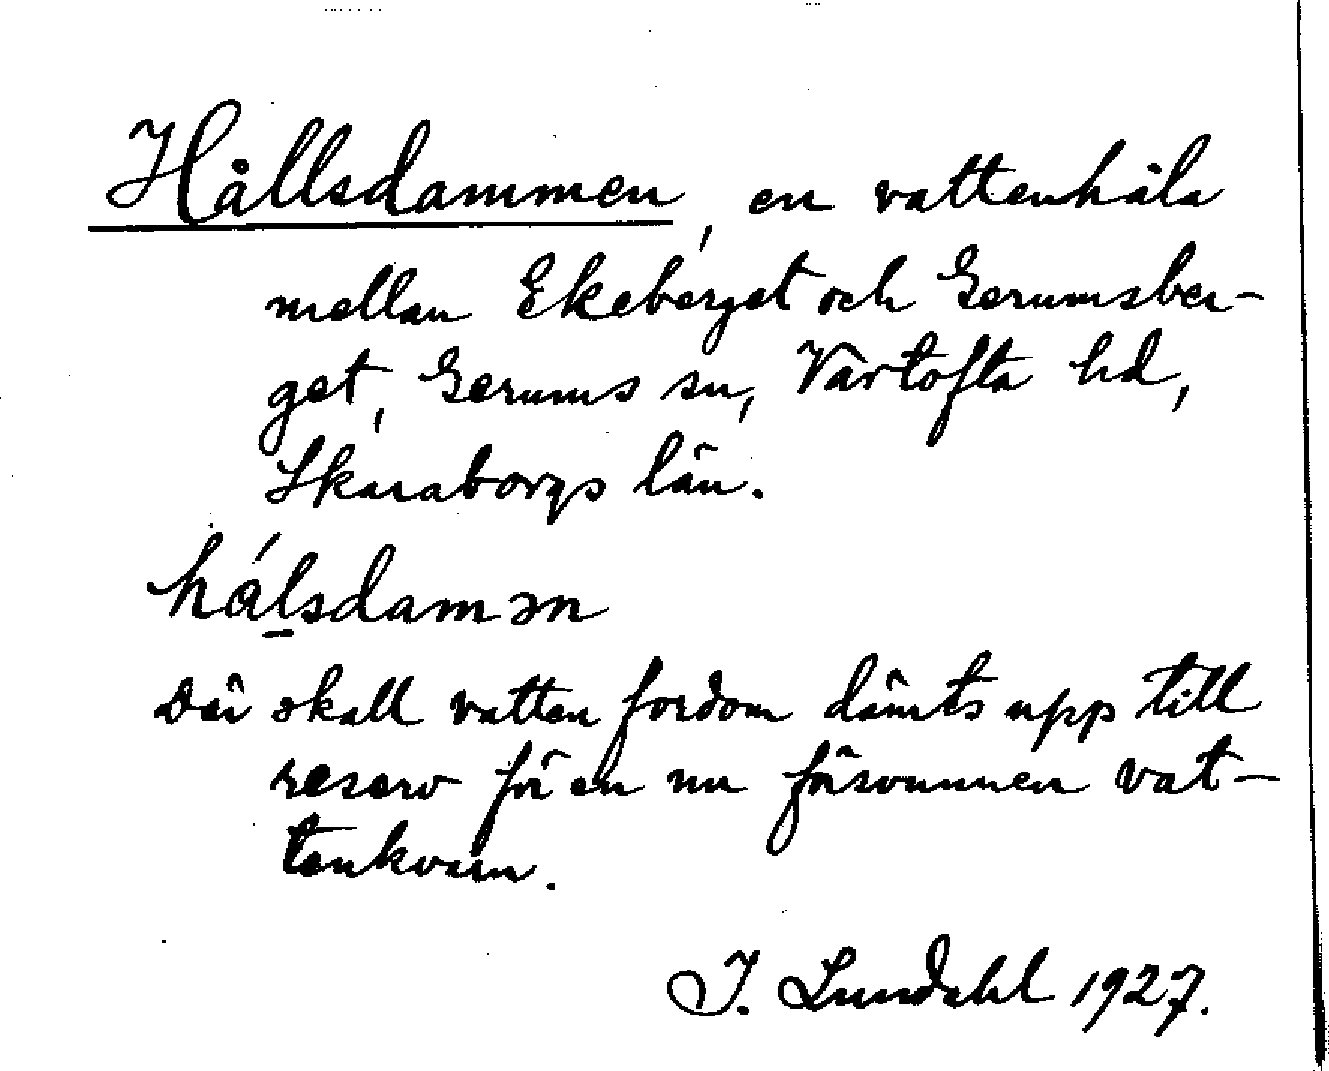 Hållsdammen, en vattenhåla
mellan Ekeberget och Gerumsber-
get, Gerums sn, Vartofta hd,
Skaraborgs län.
hɑ́l̠sdamən
Där skall vatten fordom dämts upp till
reserv för en nu försvunnen vat-
tenkvarn.
I. Lundahl 1927.